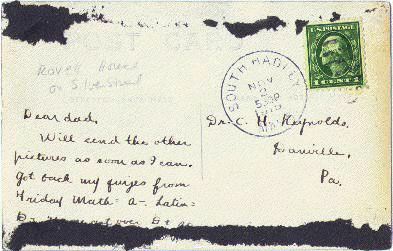 POST CARD
on
SOUTH HADLEY
NOV
2
530P
MASS.
U.S. POSTAGE
1 CENT 1
Dear dad,
Will send the other
pictures as soon as I can.
Got back my quizes from
Friday Math = A-. Latin =
Dr. C. H. Reynolds,
Danville,
Pa.